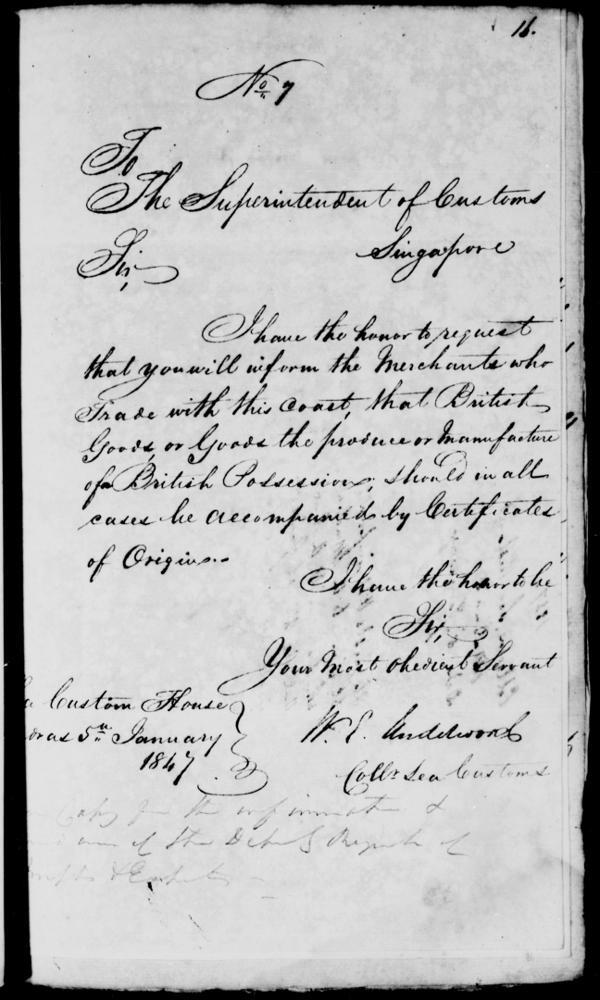 16.
No. 7
To
The Superintendent of Customs
Singapore
Sir,
I have the honor to request
that you will inform the Merchants who
Trade with this coast, that British
Goods, or Goods the produce or Manufacture
of a British Possession, should in all
cases be accompanied by Certificates
of Origin.
I have the honor to be
Sir,
Your Most obedient Servant
Custom House
5th January
1847
W. E. Underwood
Collr Sea Customs
Copy for the information &
of the